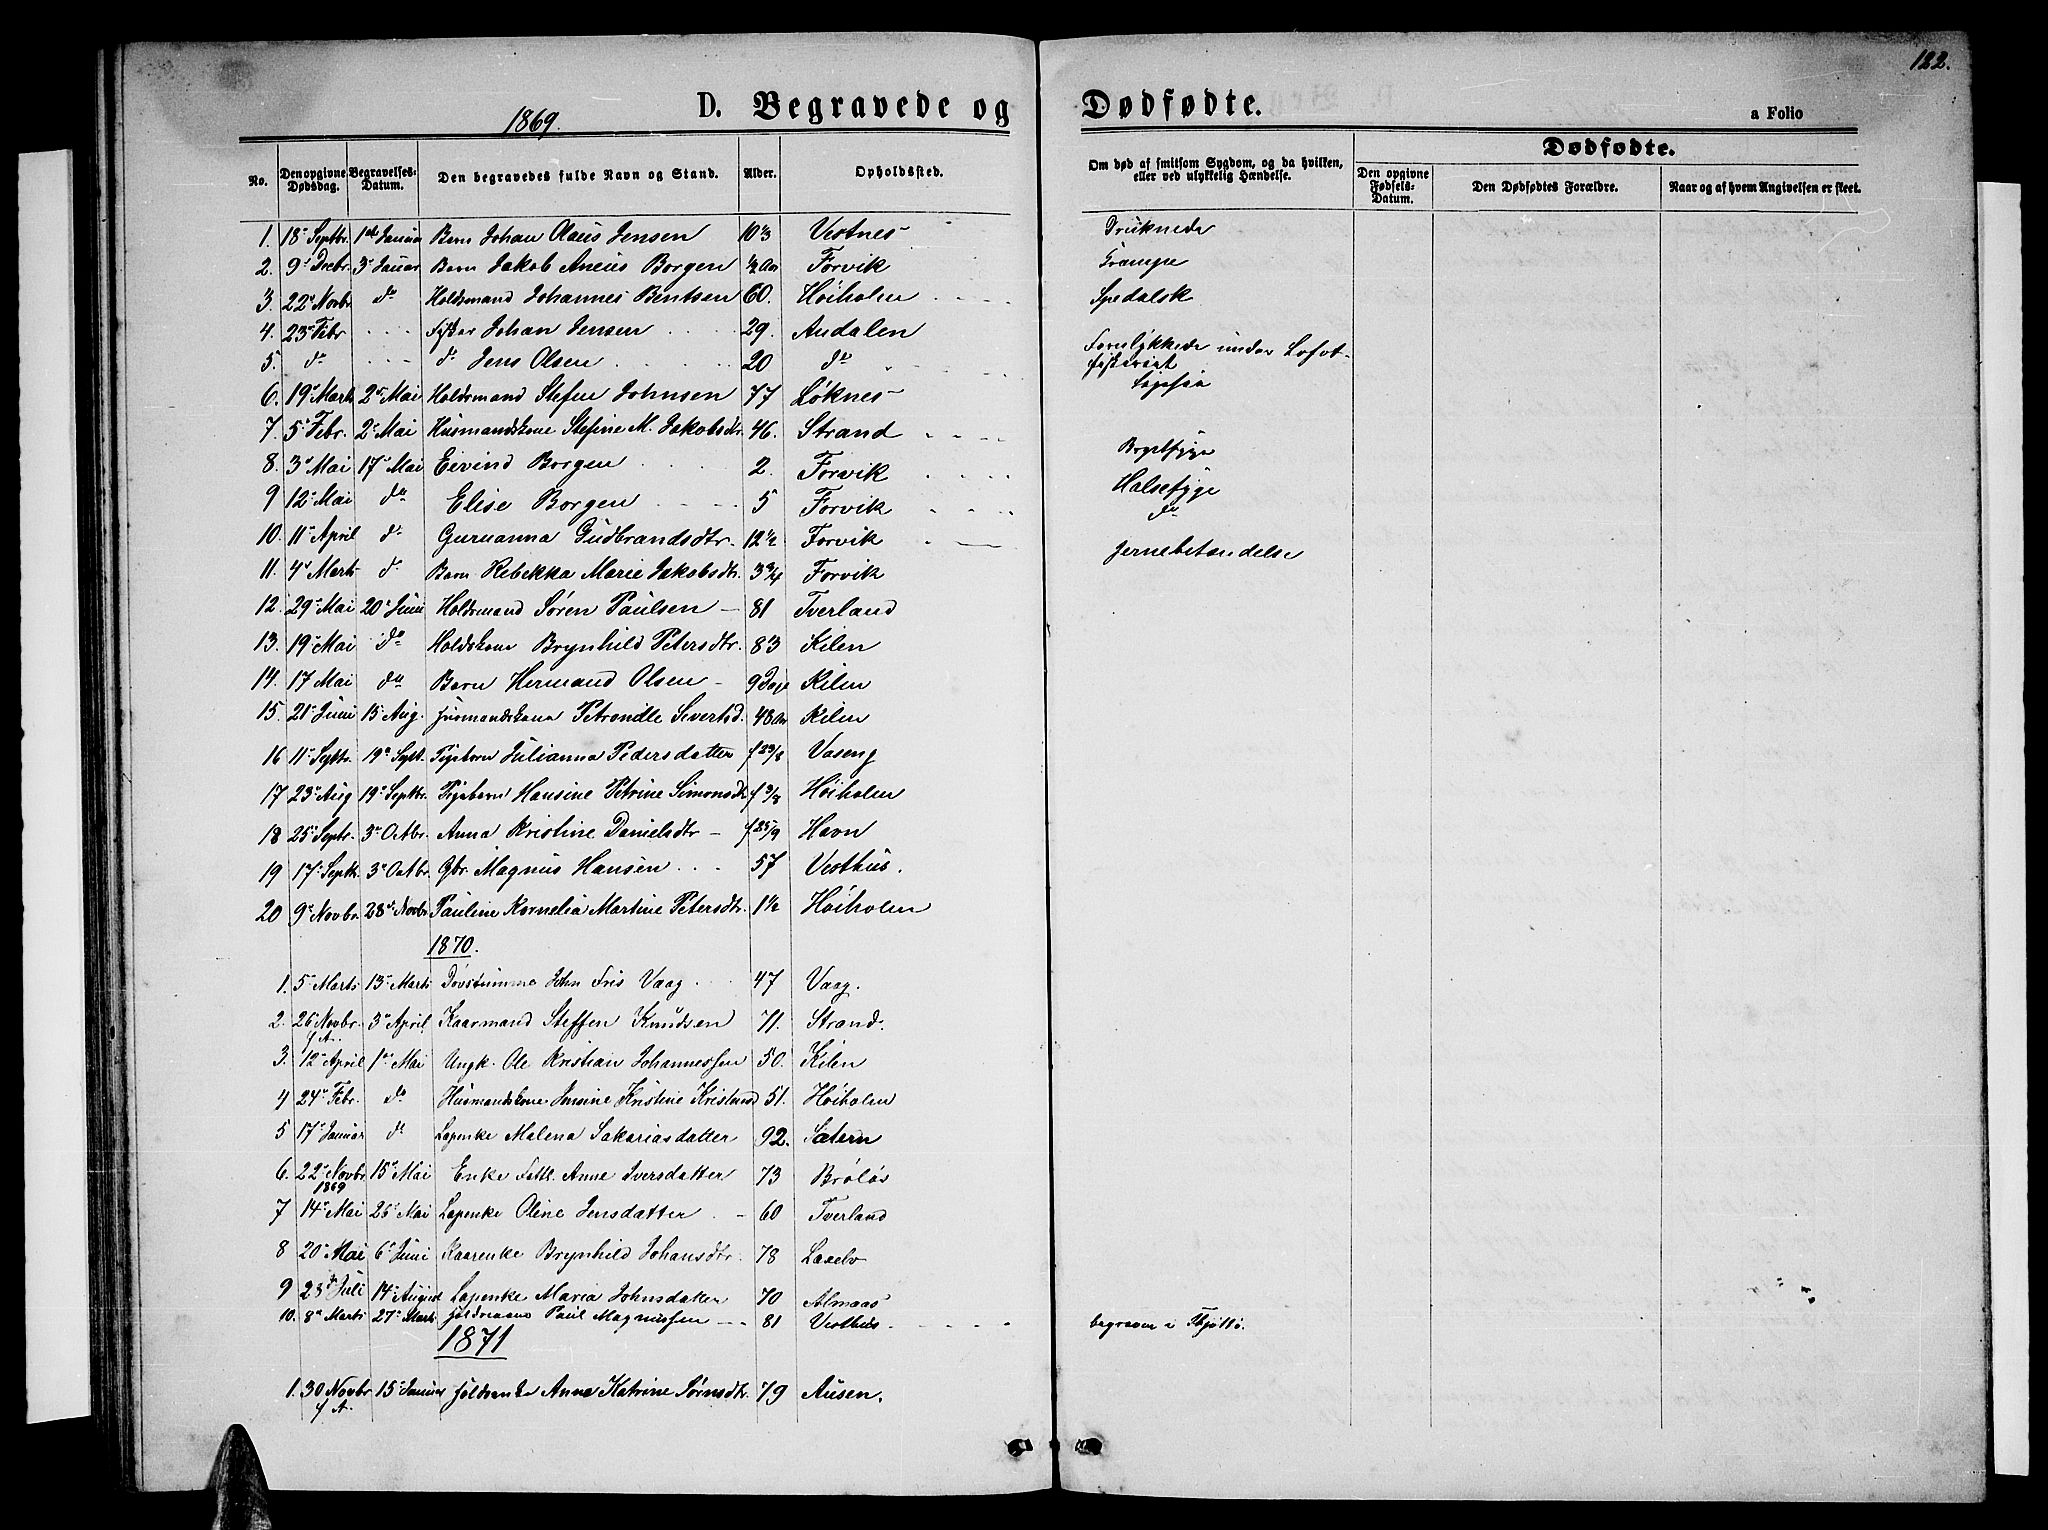 122.
D. Begravede og Dødfødte.
1869.
a Folio
No. Den opgivne Dødsdag. Begravelses-Datum. Den begravedes fulde Navn og Stand. Alder. Opholdssted. Om død af smitsom Sygdom, og da hvilken, eller ved ulykkelig Hændelse. Dødfødte. Den opgivne Fødsels-Datum. Den Dødfødtes Forældre. Naar og af hvem Angivelsen er skeet.
1. 18 Septbr. 1st Januar Barn Johan Olaus Jensen 10 1/3 Vestnes Druknede
2. 9 Decbr. 3 Januar Barn Jakob Aneus Borgen 1/2 Aar Forvik Krampe
3. 22 Novbr do Holdsmand Johannes Bentsen 60. Høiholm Spedalsk
4. 23 Febr Fisker Johan Jensen 29. Andalen Forulykkede under Lofot-
5. do do Jens Olsen 20 do fiskeriet
6. 19 Marts 2 Mai Holdsmand Stefen Johnsen 77 Løknes
7. 5 Febr. 2 Mai Husmandskone Stefine M. Jakobsdtr. 46. Strand Brystsyge
8. 3 Mai 17 Mai Eivind Borgen 2. Forvik Halssyge
9 12 Mai do Elise Borgen 5 Forvik do
10. 11 April do Guruanna Gudbrandsdtr. 12 1/2 Forvik Jernebetændelse
11. 4 Marts do Barn Rebekka Marie Jakobsdtr. 3 3/4 Forvik
12. 29 Mai 20 Juni Holdsmand Søren Paulsen 81 Tverland
13. 19 Mai do Holdskone Brynhild Petersdtr. 83 Kilen
14. 17 Mai do Barn Hermand Olsen 9 Dage Kilen
15. 21 Juni 15 Aug. Husmandskone Petronille Sivertsd. 48 Aar Kilen
16 11 Septr. 19 Sept. Pigebarn Julianna Pedersdatter f 29/8 Vaseng
17 23 Aug 19 Septbr. Pigebarn Hansine Petrine Simonsdtr f 3/8 Høiholm
18 25 Septr. 3 Octbr. Anna Kristine Danielsdtr f 25/9 Havn
19 17 Septr. 3 Octbr. Gbr. Magnus Hansen 57 Vesthus.
20 9 Novbr. 28 Novbr Pauline Kornelia Martine Petersdtr. 1 1/2 Høiholm
1870.
1. 5 Marts 13 Marts Døvstumme John Fris Vaag 47 Vaag.
2. 26 Novbr. f A. 3 April Kaarmand Steffen Knudsen 71. Strand.
3. 12 April 1 Mai Ungk. Ole Kristian Johannessen 50. Kilen
4 24 Febr. do Husmandskone Kristine 51. Høiholm
5 17 Januar do Lapenke Malena Sakariasdatter 92. Sætern
6. 22 Novbr 1869 15 Mai Enke Fattl. Anne Iversdatter 73 Brøløs
7 14 Mai 26 Mai Lapenke Oline Jensdatter 60 Tverland
8 20 Mai 6 Juni Kaarenke Brynhild Johansdtr. 78 Laxelv
9 23 Juli 14 August Lapenke Maria Johnsdatter 70 Almaas
10. 8 Marts 27 Marts Paul Magnussen 81 Vesthus begraven i Tjøttø.
1871
1. 30 Novbr f A. 15 Januar Anne Katrine Sørnsdtr. 79 Ausen.